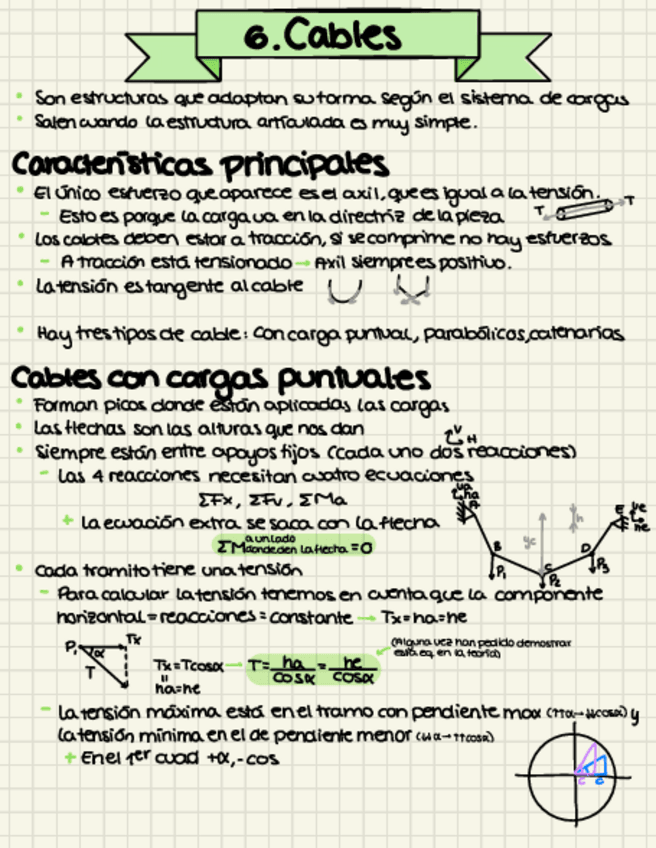 6. Cables
Son estructuras que adaptan su forma según el sistema de cargas
Salen cuando la estructura articulada es muy simple.
Características principales
El único esfuerzo que aparece es el axil, que es igual a la tensión.
- Esto es porque la carga va en la directriz de la pieza
T T
Los cables deben estar a tracción, si se comprime no hay esfuerzos
- A tracción está tensionado → Axil siempre es positivo.
La tensión es tangente al cable
Hay tres tipos de cable: Con carga puntual, parabólicos, catenarias
Cables con cargas puntuales
Forman picos donde están aplicadas las cargas
Las flechas son las alturas que nos dan
V H
Siempre están entre apoyos fijos (cada uno dos reacciones)
- Las 4 reacciones necesitan cuatro ecuaciones
ΣFx, ΣFv, ΣMa
+ La ecuación extra se saca con la flecha
ΣM a un lado donde den la flecha = 0
va ha A B P1 yc C P2 h D P3 E ve he
Cada tramito tiene una tensión
- Para calcular la tensión tenemos en cuenta que la componente
horizontal = reacciones = constante → Tx = ha = he
P1 α Tx T
Tx = T cosα → T = ha/cosα = he/cosα
ha = he
(Alguna vez han pedido demostrar
esta eq. en la teoría)
- La tensión máxima está en el tramo con pendiente max (↑↑α→↓↓cosα) y
la tensión mínima en el de pendiente menor (↓↓α→↑↑cosα)
+ En el 1er cuad +α, - cos
c c